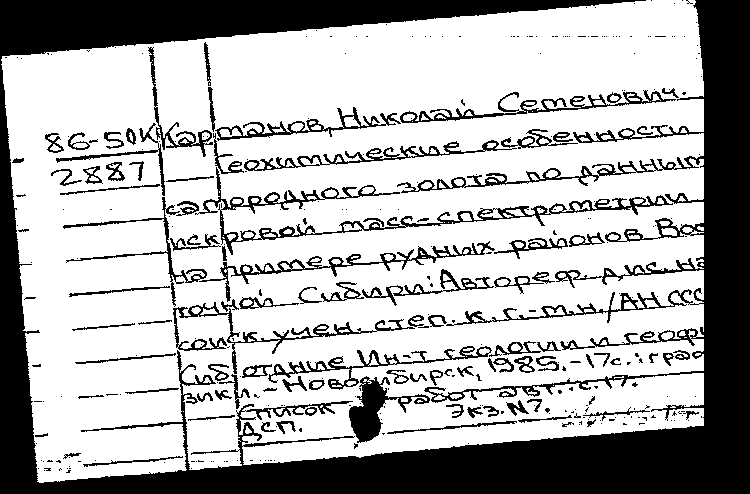 86-50К Картанов, Николай Семенович.
2887 Геохимические особенности
самородного золота по данным
искровой масс-спектрометрии
на примере рудных районов Вос
точной Сибири: Автореф. дис. на
соиск. учен. степ. к. г.-м.н. / АН ССС
Сиб. отдние, Ин-т геологии и геофи
зики. - Новосибирск, 1985. - 17с.: граф
Список работ авт.: с. 17.
ДСП. Экз. N7.